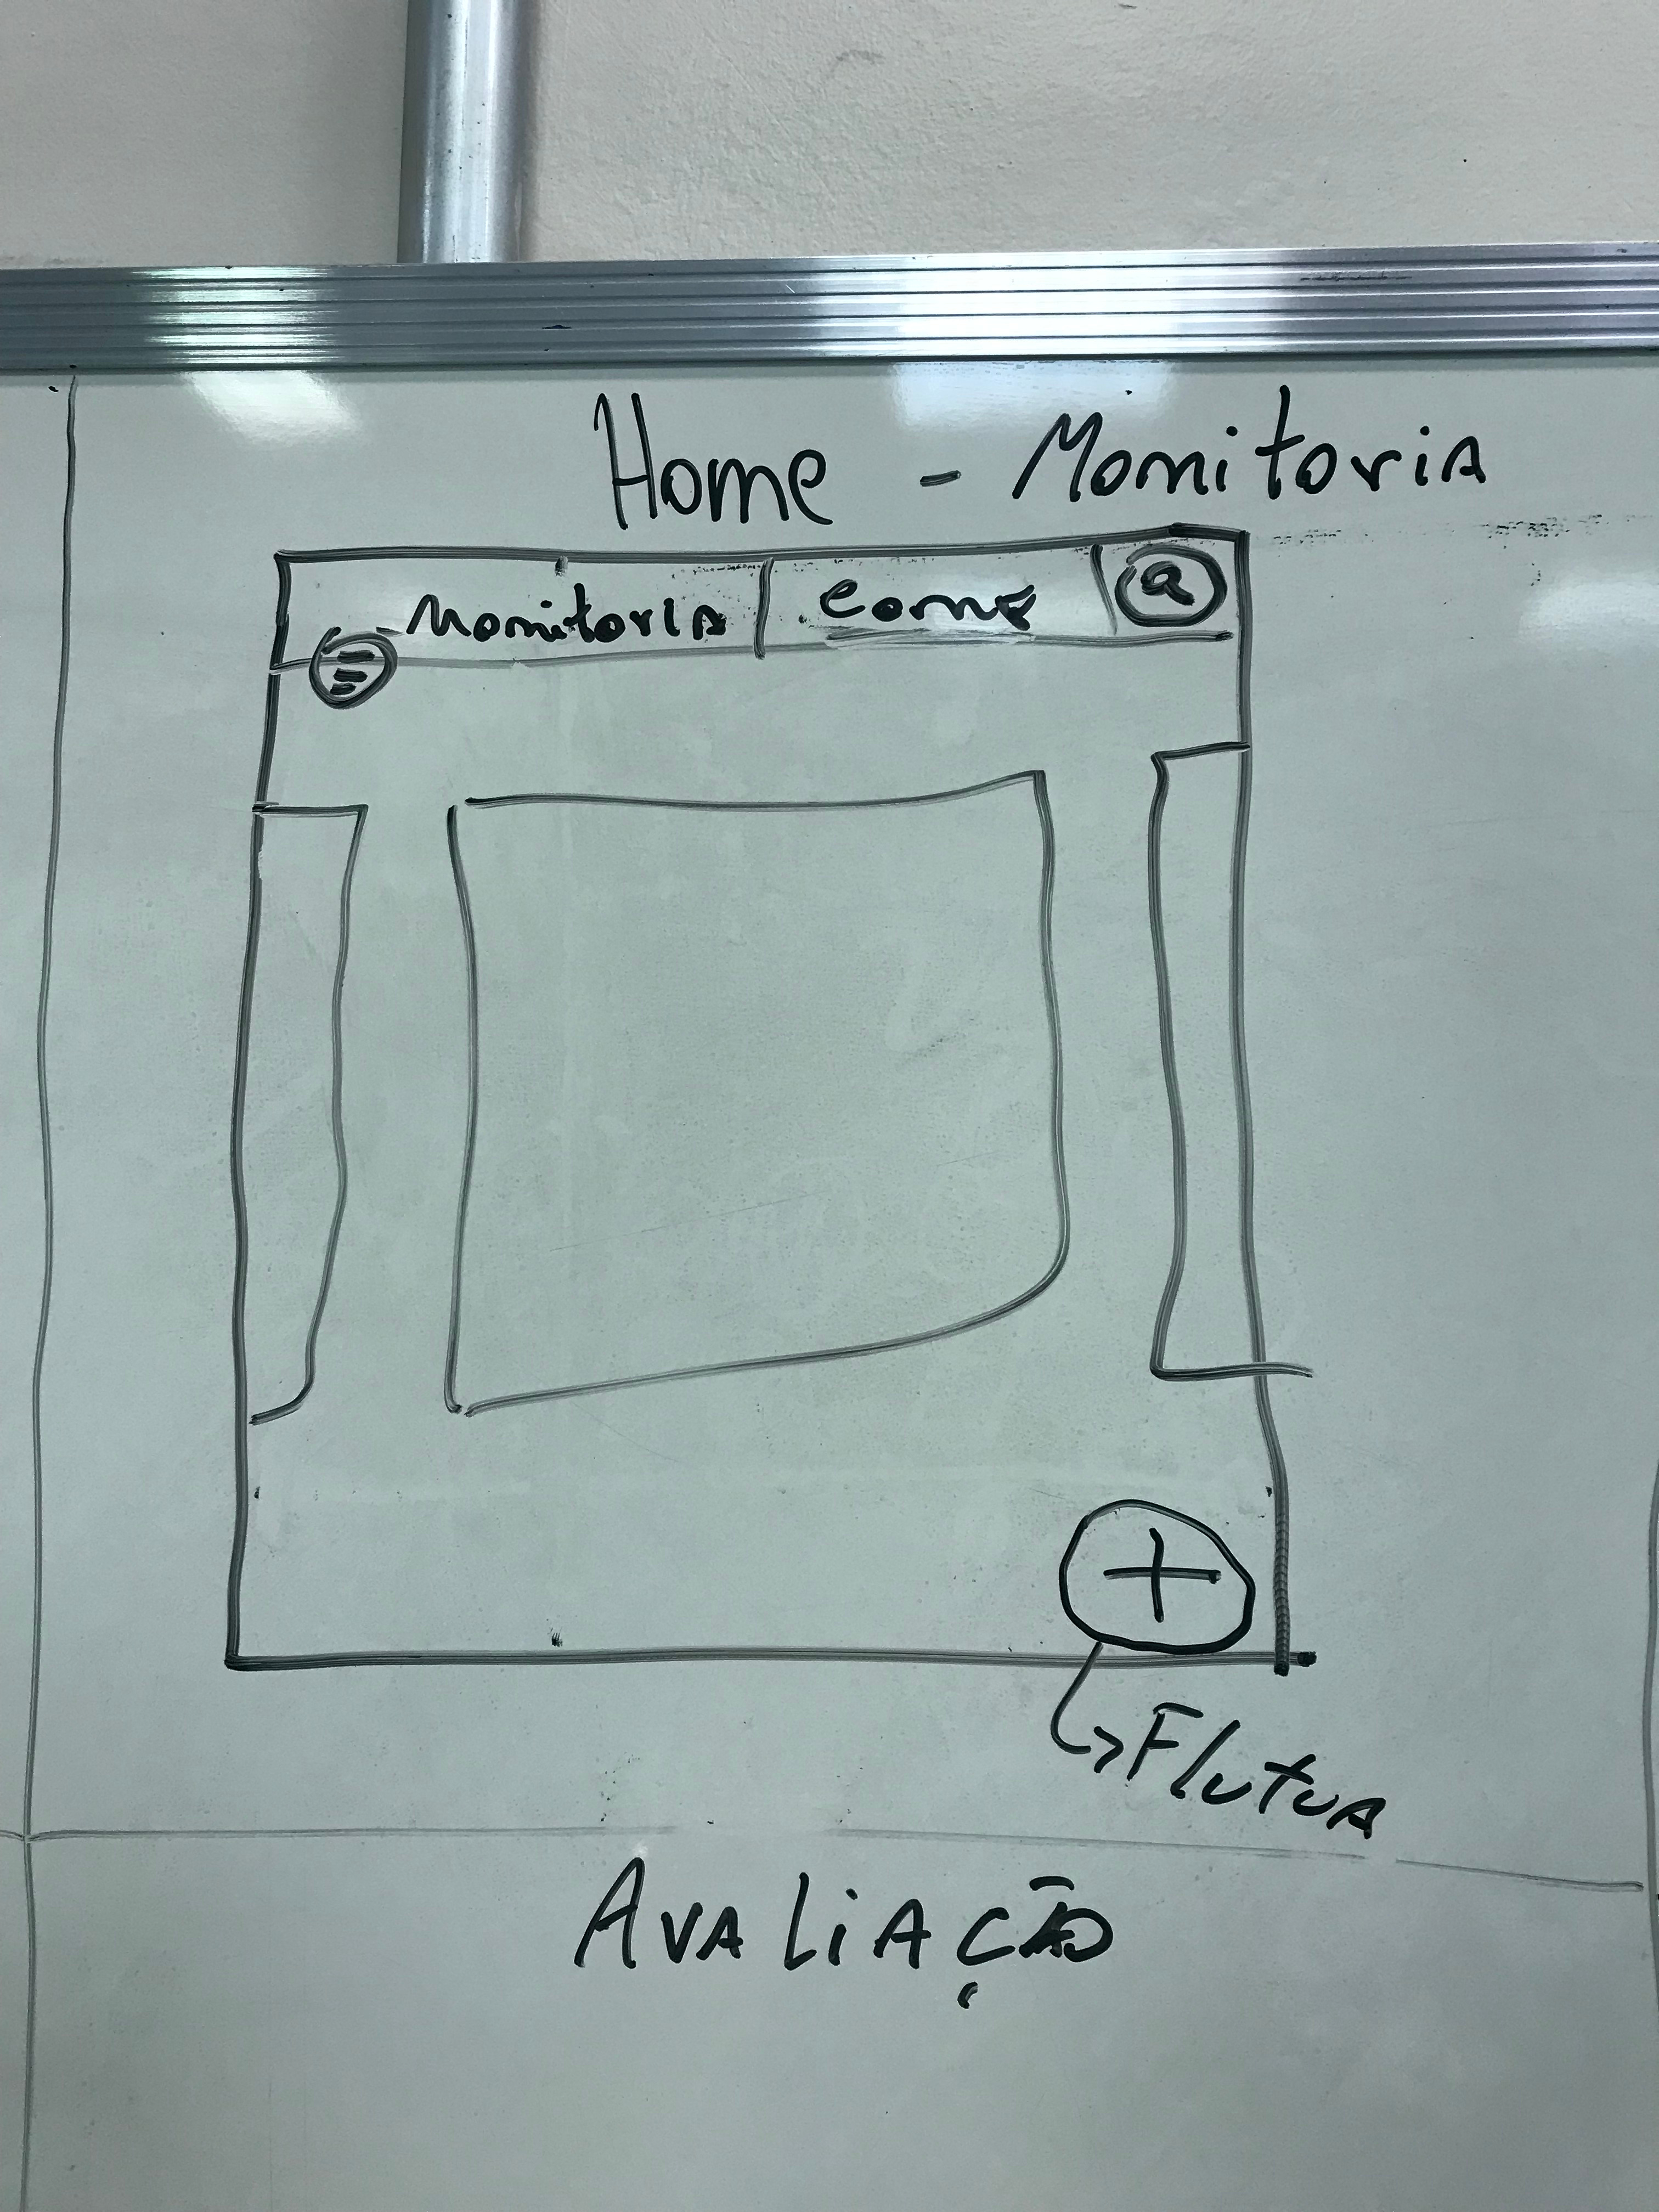 Home - Monitoria
Monitoria
a
Flutua
AVALIAÇÃO